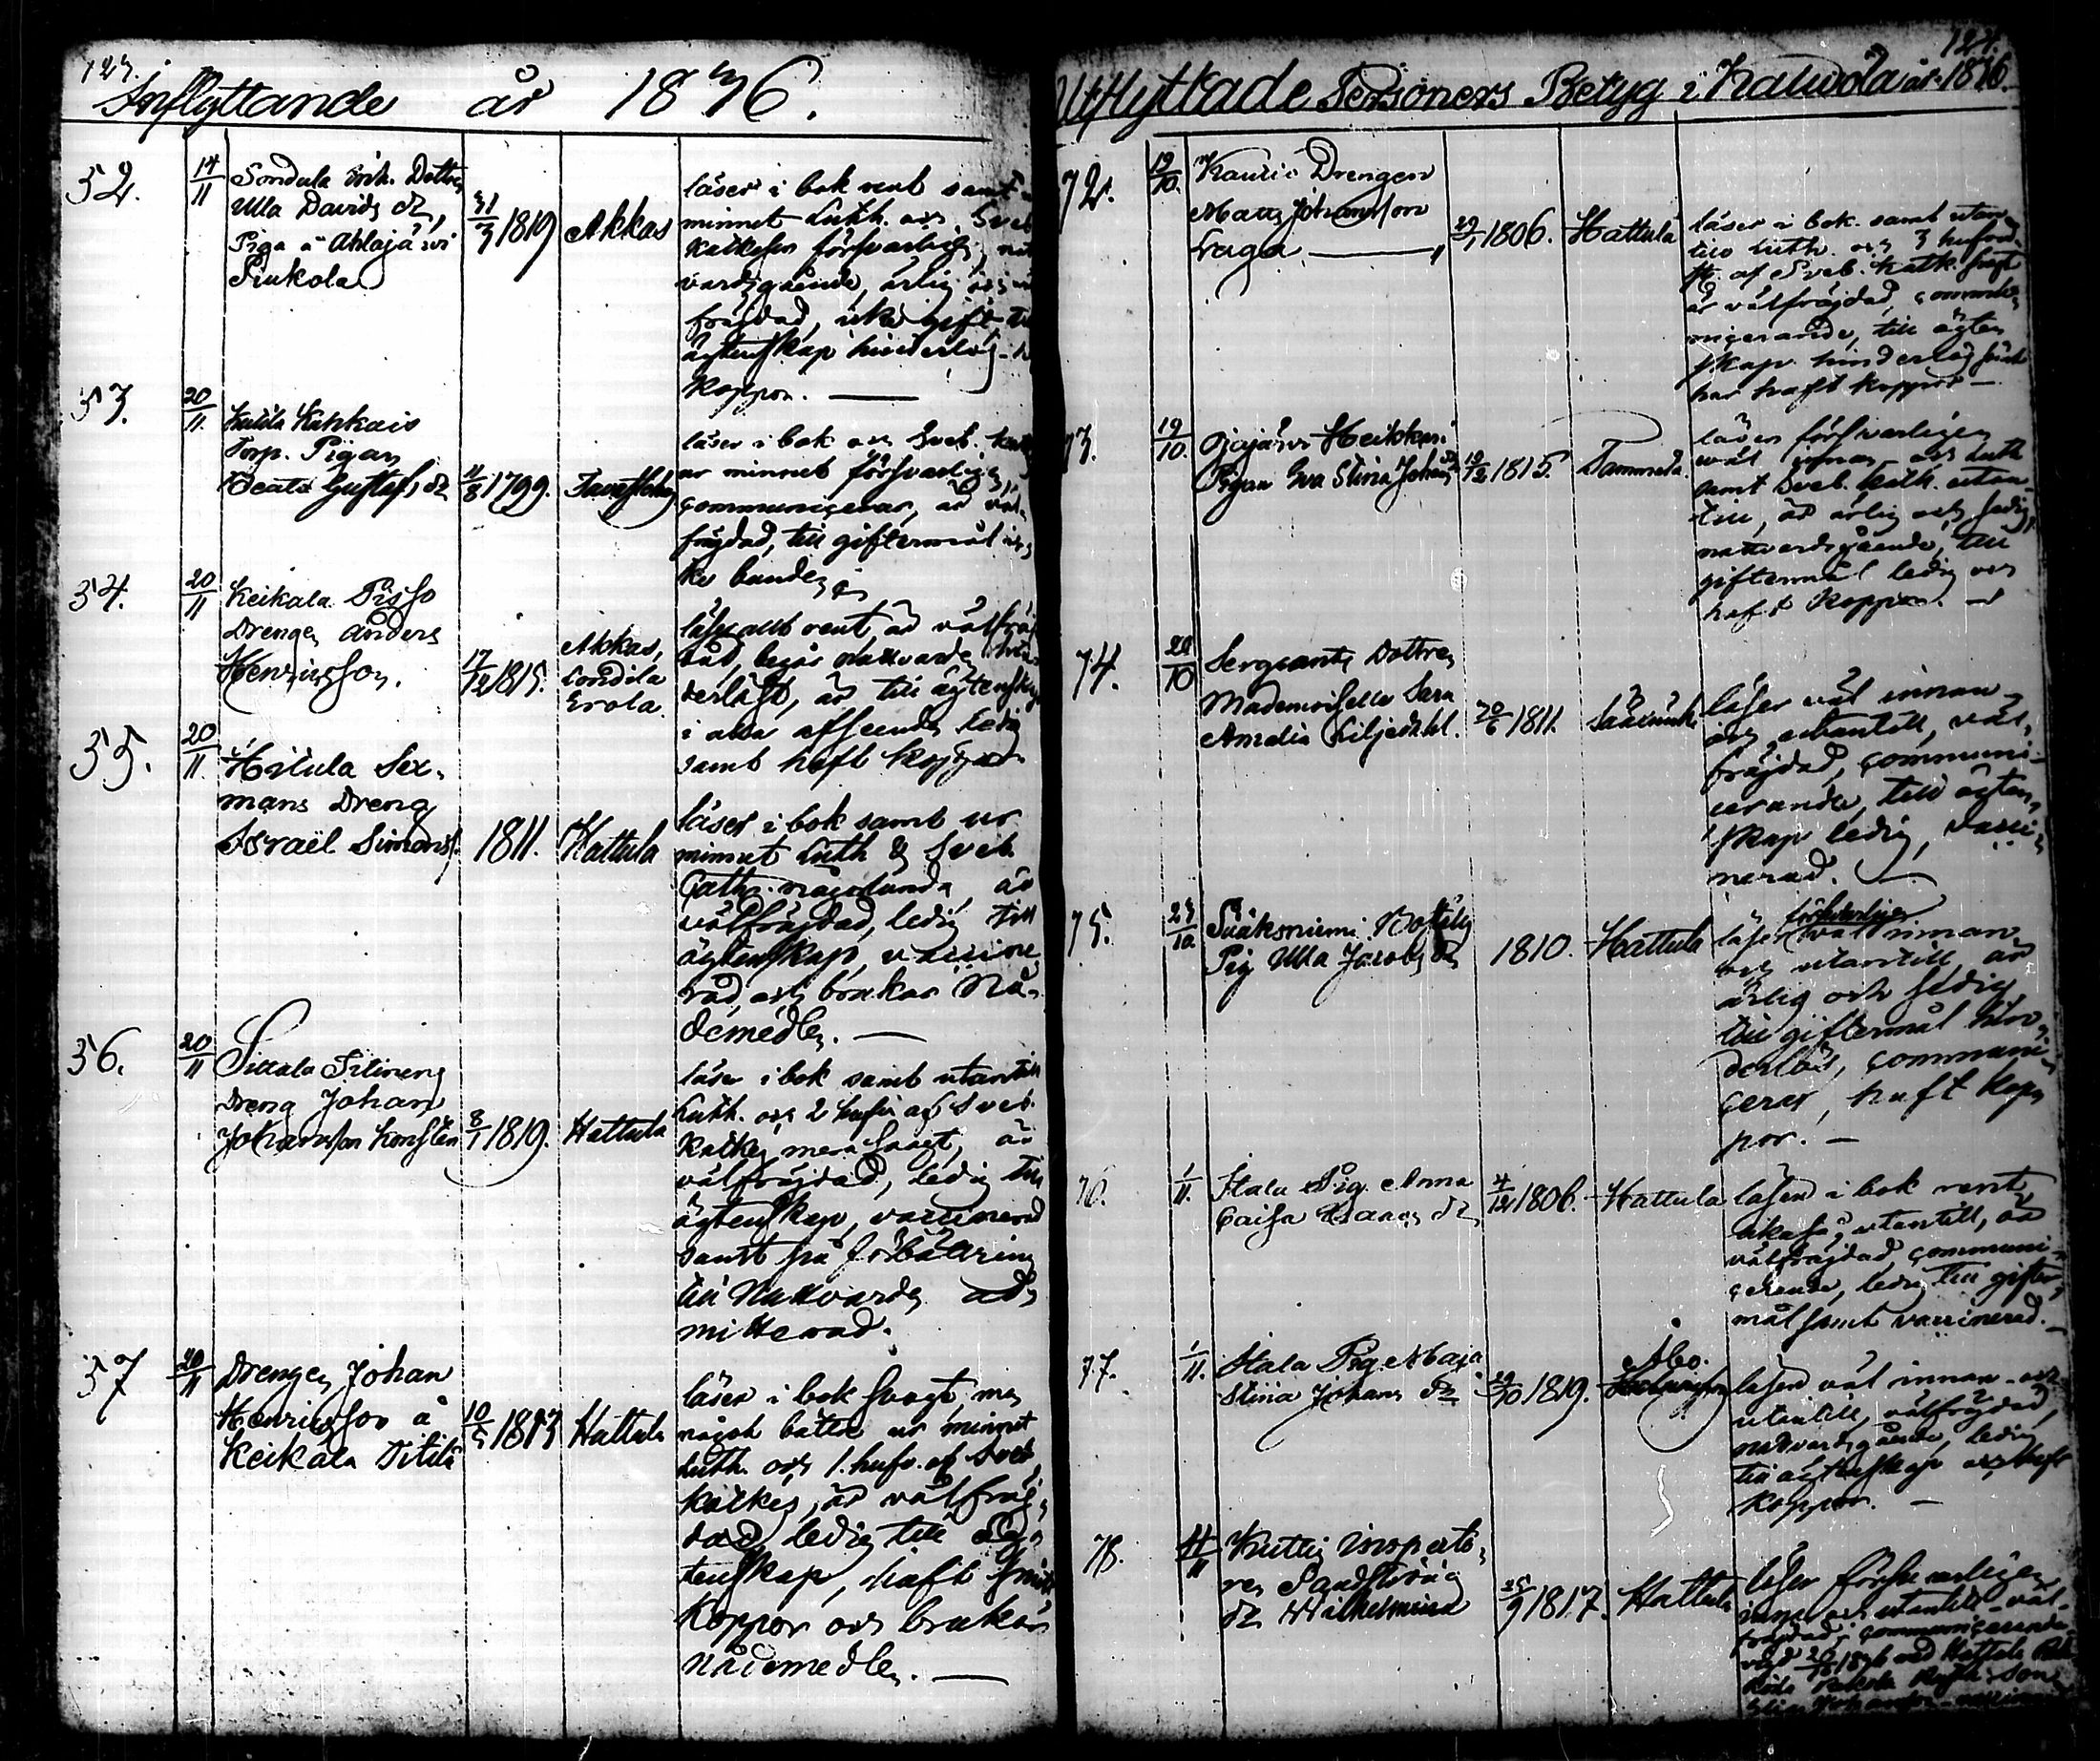 123.
Inflyttande år 1836.
52. 14/11 Sondala Erik. Dottren
Ulla Davids dr,
Piga à Ahlajärvi
Piukola
31/3 1819 Akkas
läser i bok rent samt
minnet Luth. och Sveb
Katkesen försvarlig, natt
vardsgående, ärlig och
frägdad, icke gift, til
ägtenskap hinderlös
Koppor. —
53. 20/11 Kutila Kahkais
Torp. Pigan
Beata Gustafs dr
11/8 1799. Tavastkyrö
läser i bok och Sveb.
ur minnet försvarligen,
communicerar, är väl
frägdad, till giftermål ic
ke bunden
54. 20/11 Keikala Pisso
Drengen Anders
Henricsson.
17/12 1815. Akkas,
Contila
Erola
läser allt rent, är välfräg
dad, begår nattvarden
derlöst, är till ägtenskap
i alla afseende ledig
samt haft Koppor
55. 20/11 Hitula Sex-
mans Dreng
Israël Simonss.
1811. Hattula
läser i bok samt ur
minnet Luth & Sveb
Cathz. någorlunda, är
välfrägdad, ledig till
ägtenskap, vaccine
rad och brukar Nå-
demedlen. —
56. 20/11 Sittala Silineng
Dreng Johan
Johansson Konstén
8/1 1819. Hattula
läser i bok samt utantill
Luth. och 2 hufv. af Sveb.
Katkes, mera svagt, är
välfrägdad, ledig till
ägtenskap, vaccinerad
samt på förbättring
till Nattvarden ad-
mitterad.
57 20/11 Drengen Johan
Henricsson à
Keikala Titilä
10/5 1813 Hattula
läser i bok svagt, men
något bättre ur minnet
Luth. och 1. hufv. af Sveb.
Katkes, är välfräg-
dad, ledig till äg-
tenskap, haft
Koppor och brukar
nådemedlen. —
124.
Utflyttade Personers Betyg i Kalvola år 1836.
72. 19/10. Kanris Drengen
Matts Johansson
Fraga —
1806. Hattula
läser i bok. samt utan
till Luth. och 3 hufvud
st. af Sveb. Katk. svagt
är välfrägdad, commu-
nicerande, till ägten
skap hinderlös samt
har haft koppor —
73. 19/10. Ojajärvi Heikkari
Pigan Eva Stina Johans dr
19/12 1815. Tammela.
läser försvarligen
väl innan- och Luth
samt Sveb. Katk. utan-
till, är ärlig och sedig,
nattvardsgående, till
giftermål ledig och
haft Koppor. —
74. 20/10 Sergeants Dottren
Mademoiselle Sara
Amalia Liljedahl.
20/6 1811. Sääxmäki
läser väl innan-
och utantill, väl-
frägdad, communi-
cerande, till ägten-
skap ledig, vacci-
nerad.
75. 23/10 Suaksniemi
Pig Ulla Jacobs dr
1810. Hattula
läser försvarligen väl innan
och utantill, är
ärlig och sedig
till giftermål hin-
derlös, communi-
cerar, haft kop-
por. —
76. 1/11. Italu Pig. Anna
Caisa Isaacs dr
4/12 1806. Hattula
läser i bok rent,
likaså utantill, är
välfrägdad, communi-
cerande, ledig till gifter-
mål samt vaccinerad. —
77. 1/11. Italu Pig. Maja
Stina Johans dr
29/10 1819. Åbo.
läser väl innan- och
utantill, välfrägdad,
nattvardsgående, ledig
till ägtenskap och haft
koppor. —
78. 11/11 Kuttis Inspecto-
ren Sandströms
dr Wilhelmina
25/9 1817. Hattula
läser försvarligen
innan och utantill, väl-
frägdad, communicerande
1836 ved Hattula